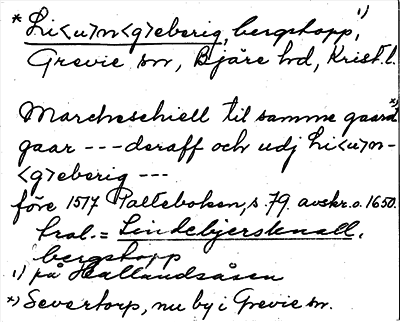 * Li<u>n<g>eberig, bergstopp, 1)
Grevie sn, Bjäre hd, Krist. l.
Marcheschiell til samme gaard *)
gaar --- deraff och udj Li<u>n-
<g>eberig ---
före 1517 Palteboken, s. 79. avskr. o. 1650.
trol. = Lindebjersknall,
bergstopp
1) på Hallandsåsen
*) Severtorp, nu by i Grevie sn.